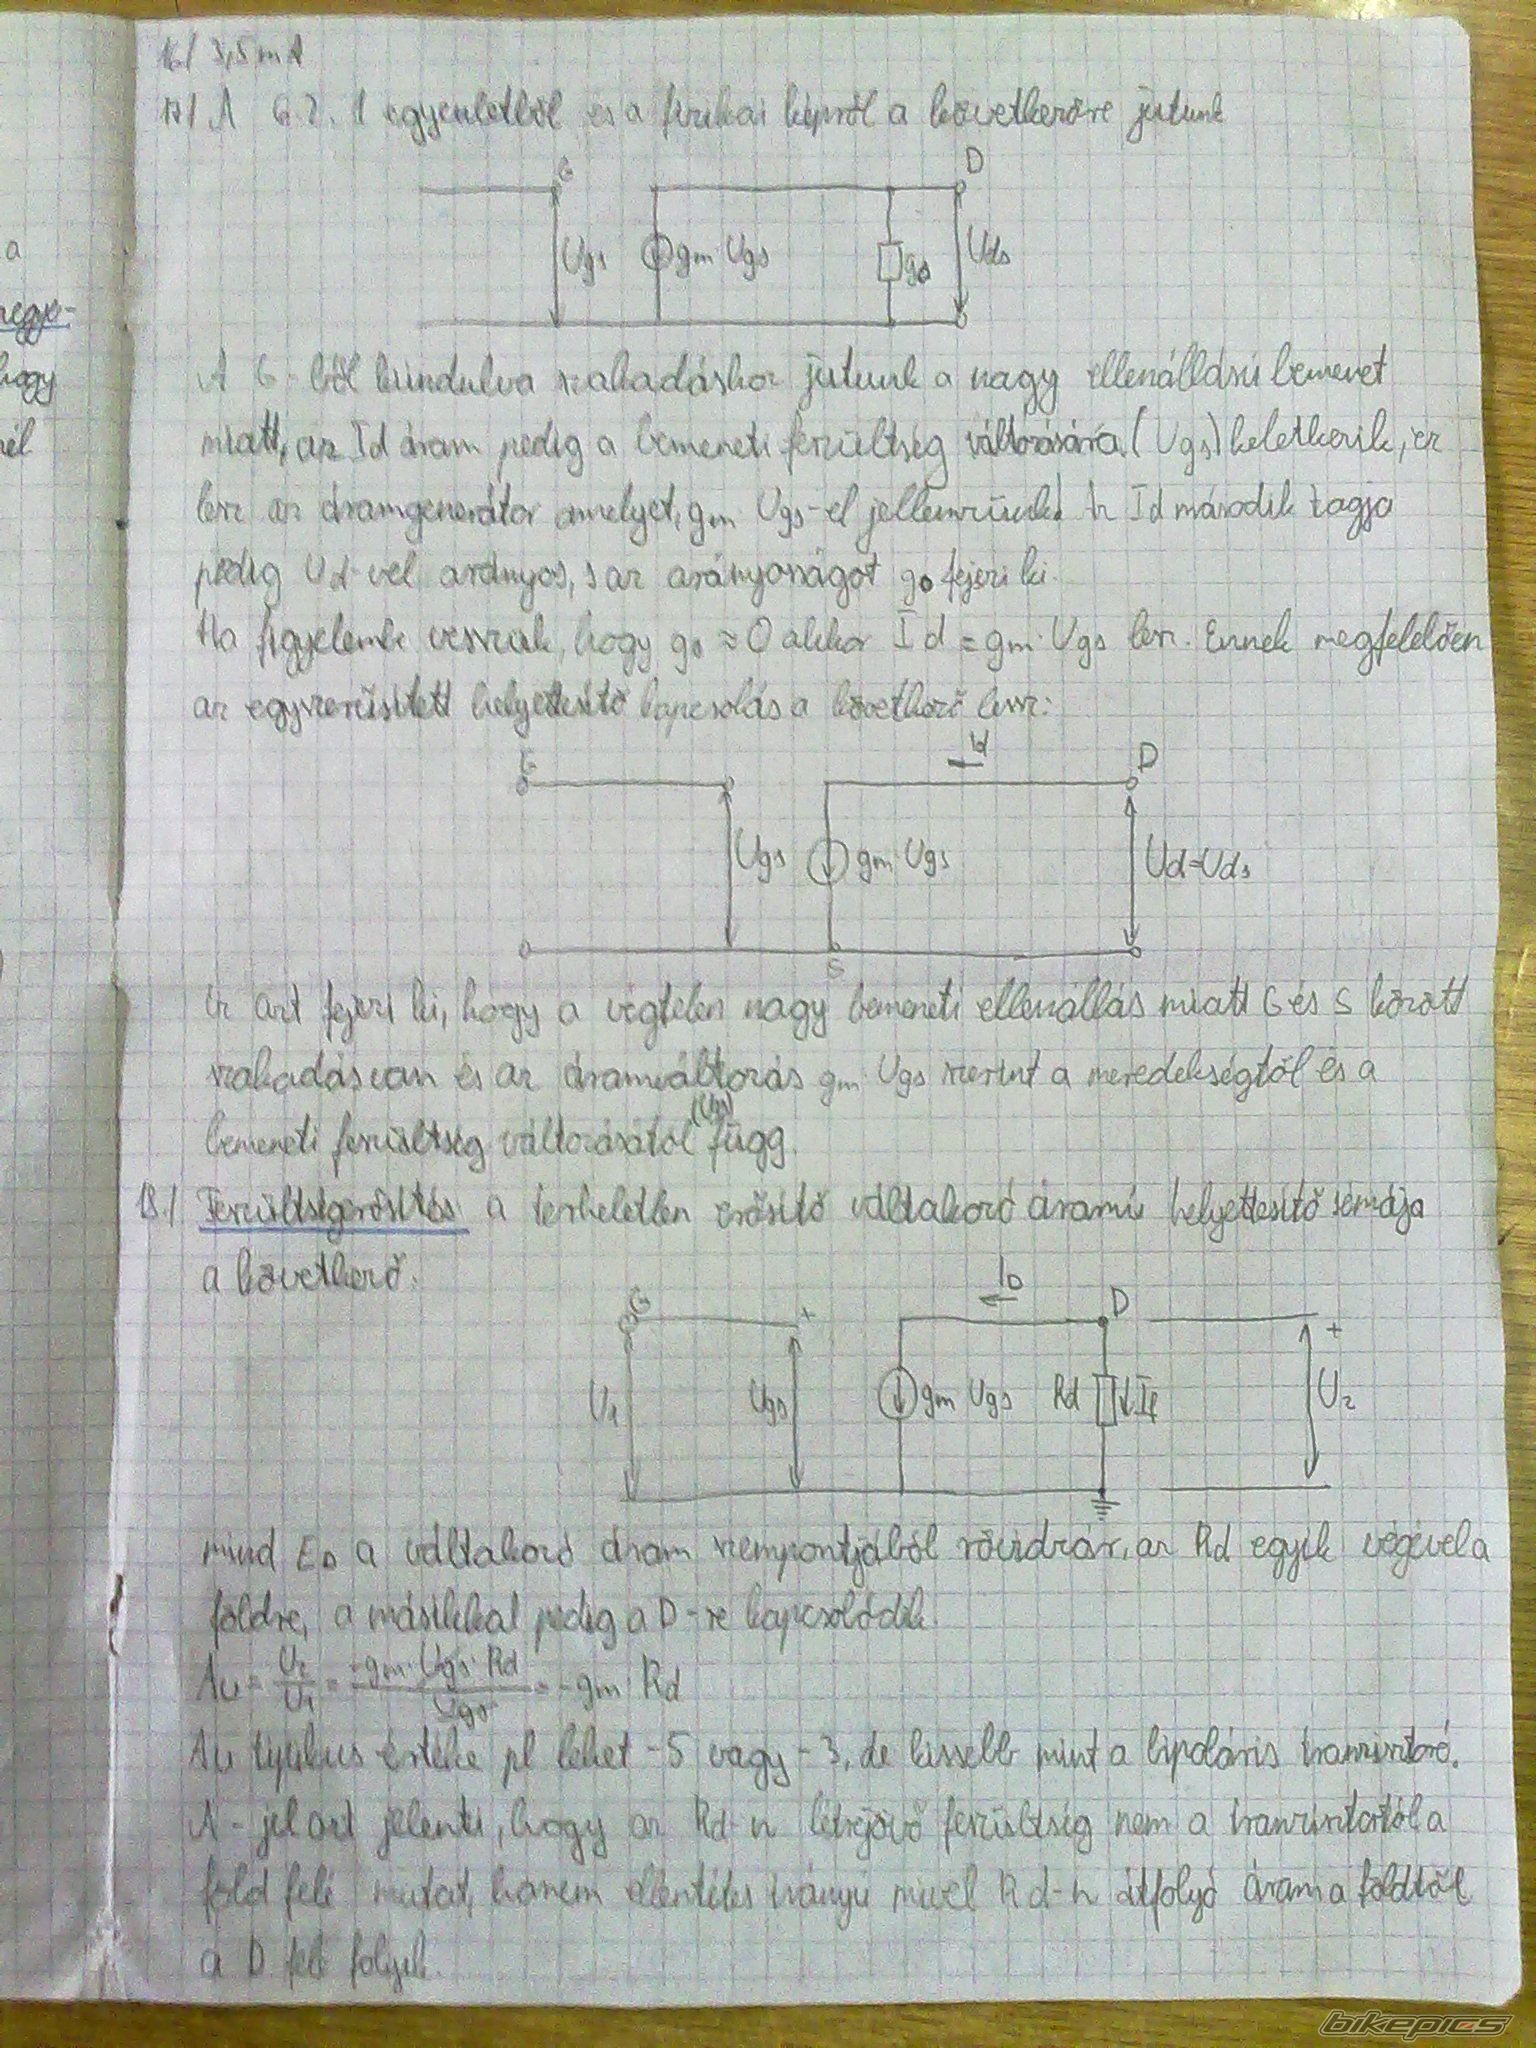 16./ 3,5 mA
17./ A 6.2.1 egyenletből és a fizikai képről a következőre jutunk
G
D
Ugs
gm·Ugs
g0
Uds
A G-ből kiindulva szakadáshoz jutunk a nagy ellenállású bemenet
miatt, az Id áram pedig a bemeneti feszültség változására (Ugs) keletkezik, ez
lesz az áramgenerátor amelyet, gm·Ugs-el jellemzünk. Az Id második tagja
pedig Ud-vel arányos, s az arányosságot g0 fejezi ki.
Ha figyelembe vesszük, hogy g0 ≈ 0 akkor Id = gm·Ugs lesz. Ennek megfelelően
az egyszerűsített helyettesítő kapcsolás a következő lesz:
G
Id
D
Ugs
gm·Ugs
Ud=Uds
S
Ez azt fejezi ki, hogy a végtelen nagy bemeneti ellenállás miatt G és S között
szakadás van és az áramváltozás gm·Ugs szerint a meredekségtől és a
bemeneti feszültség változásától (Ugs) függ.
18./ Feszültségerősítés: a terheletlen erősítő váltakozó áramú helyettesítő sémája
a következő:
G
+
ID
D
+
U1
Ugs
gm Ugs
Rd
U2
mind ED a váltakozó áram szempontjából rövidzár, az Rd egyik végével a
földre, a másikkal pedig a D-re kapcsolódik.
Au = U2/U1 = -gm·Ugs·Rd/Ugs = -gm·Rd
Au tipikus értéke pl lehet -5 vagy -3, de kissebb mint a bipoláris tranzisztoré.
A - jel azt jelenti, hogy az Rd-n létrejövő feszültség nem a tranzisztortól a
föld felé mutat, hanem ellentétes irányú mivel Rd-n átfolyó áram a földtől
a D felé folyik.
a
hogy
nél
bikepics